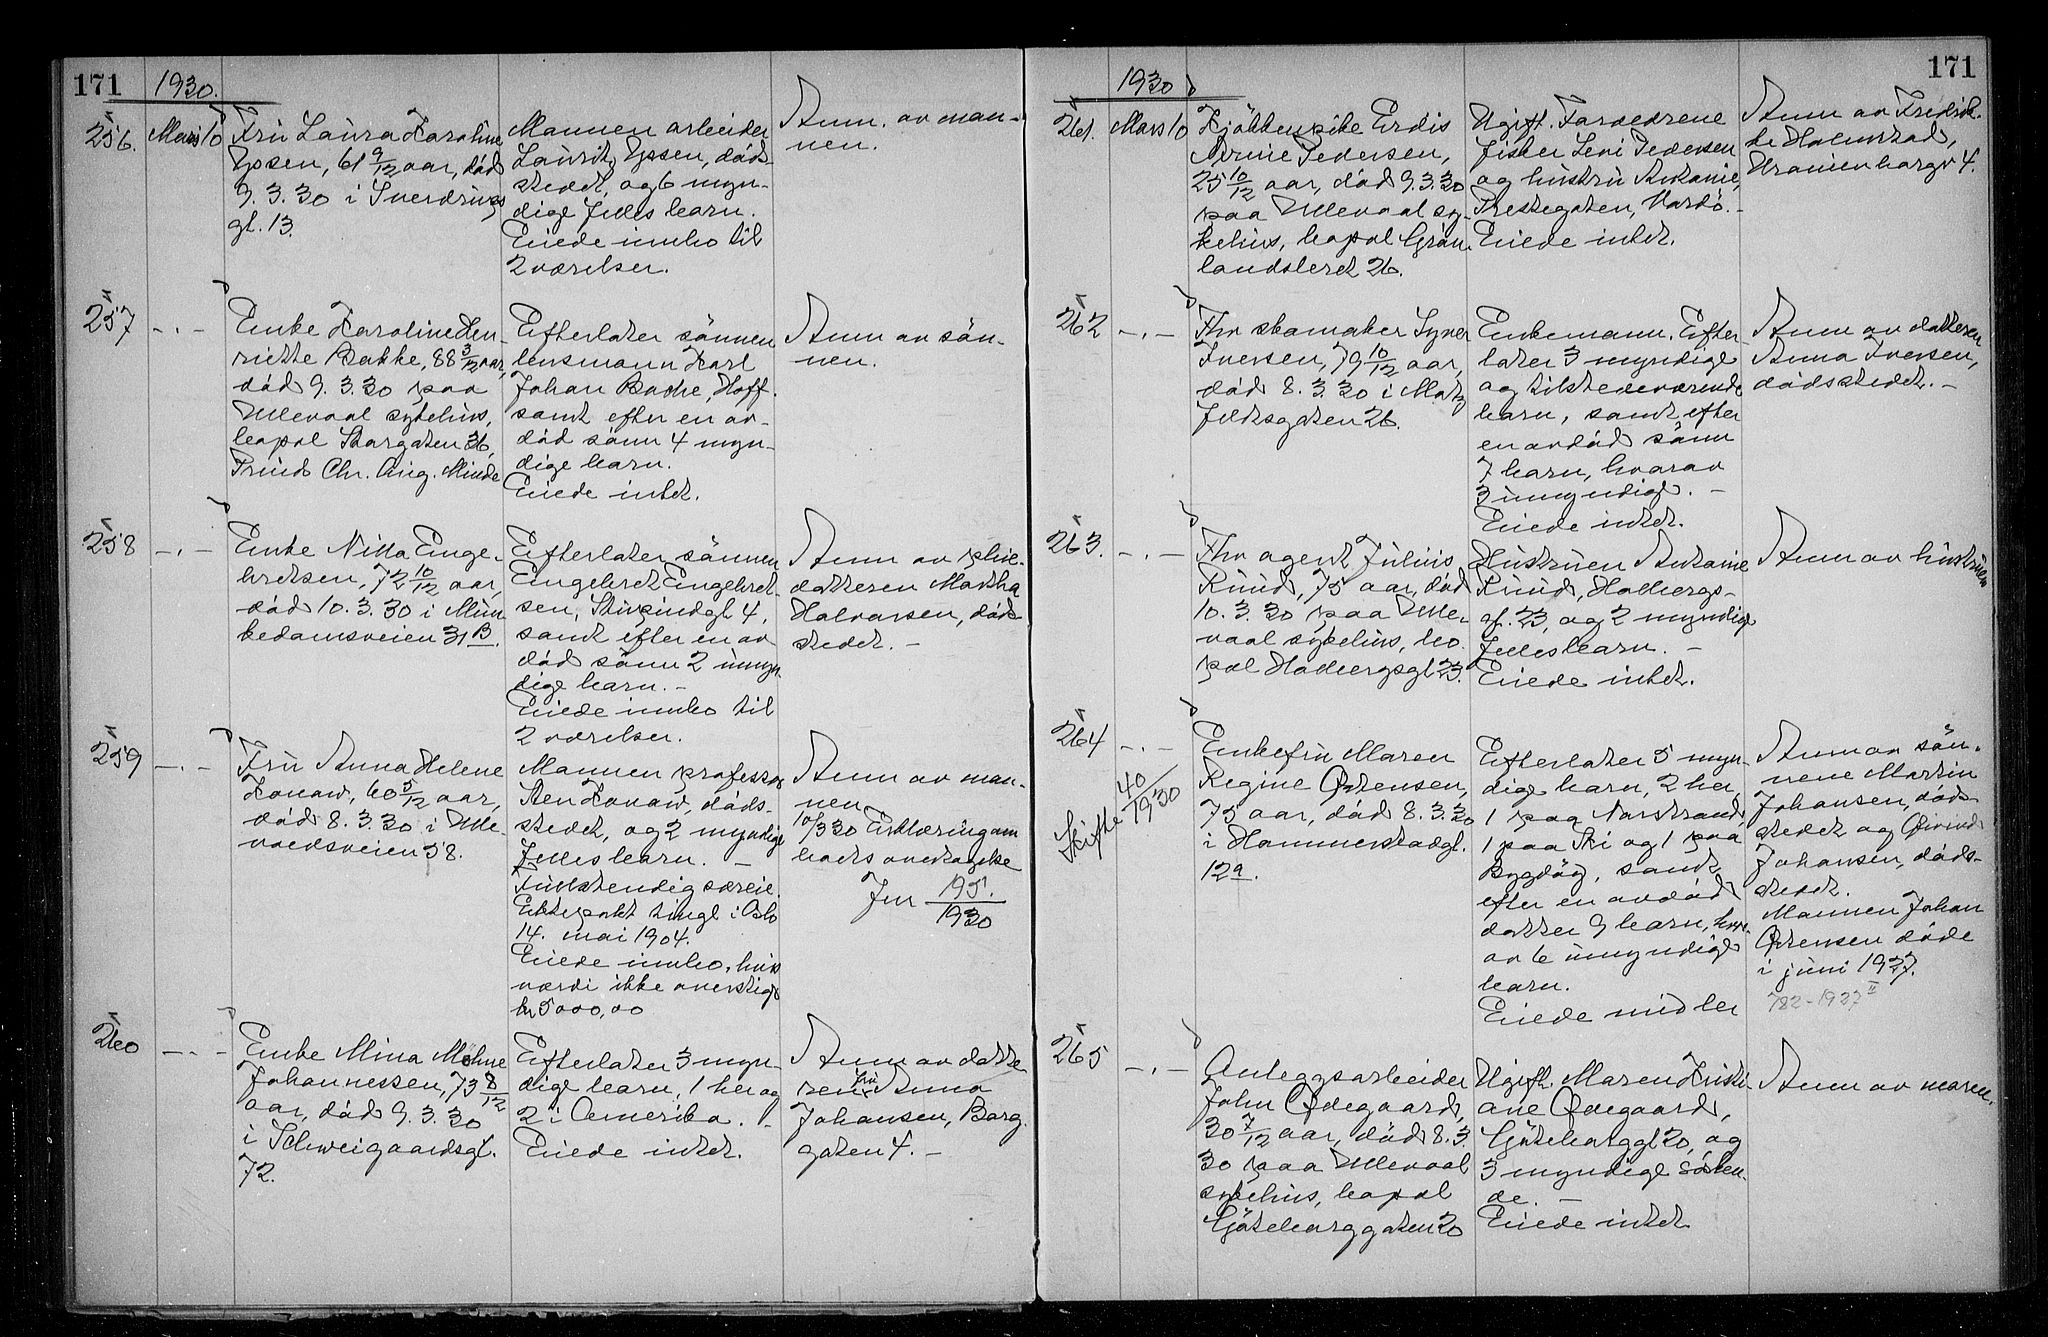 171
1930.
256. Mars 10
Fru Laura Karoline
61 9/12 aar, død
9. 3. 30 i Sverdrups
gt. 13.
Mannen arbeider
Lauritz døds-
stedet, og 6 myn-
dige felles barn.
Eiede innbo til
2 værelser.
Anm. av man-
nen.
257 -.-
Enke Karoline Hen-
riette Bakke, 88 3/12 aar,
død 9. 3. 30 paa
Ullevaal sykehus,
bopæl Storgaten 36,
Prinds Chr. Aug. Minde
Efterlater sønnen
lensmann Karl
Johan Bache, Hoff.
samt efter en av-
død sønn 4 myn-
dige barn.
Eiede intet.
Anm av søn-
nen.
258 -.-
Enke Nilla Enge-
bretsen, 72 10/12 aar,
død 10. 3. 30 i Mun
kedamsveien 31 B.
Efterlater sønnen
Engebret Engebret-
sen, 4,
samt efter en av
død sønn 2 umyn-
dige barn. -
Eiede innbo til
2 værelser.
Anm av pleie-
datteren Martha
Halvorsen, døds
stedet. -
259 -.-
Fru Anna Helene
Konow, 60 5/12 aar,
død 8. 3. 30 i Ulle-
voldsveien 58.
Mannen professor
Sten Konow, døds-
stedet, og 2 myndige
felles barn. -
Fullstendig særeie.
Ektepakt tingl i Oslo
14. mai 1904.
Eiede innbo, hvis
værdi ikke overstige
kr 5000,00
Anm av man-
nen
10/3 30 Erklæring om
boets overtagelse
Jnr 195./1930
260 -.-
Enke Mina Møhne
Johannessen, 73 8/12
aar, død 9. 3. 30
i Schweigaardsgt.
72.
Efterlater 3 myn-
dige barn, 1 her og
2 i Amerika. -
Eiede intet.
Anm av datte
ren fru Anna
Johansen, Borg
gaten 4. -
171
1930
261. Mars 10
Kjøkkenpike Erdis
Nérine Pedersen,
25 10/12 aar, død 9. 3. 30
paa Ullevaal sy-
kehus, bopæl Grøn
landsleret 26.
Ugift. Forældrene
fisker Levi Pedersen
og hustru Antonie,
Prestegaten, Vardø. -
Eiede intet.
Anm av Fredrik-
ke Holmstad,
Uranienborgv 4.
262 -.-
Fhv skomaker Syver
Iversen, 79 10/12 aar,
død 8. 3. 30 i Motz
feldtsgaten 26.
Enkemann. Efter-
later 3 myndige
og tilstedeværende
barn, samt efter
en avdød sønn
7 barn, hvorav
3 umyndige. -
Eiede intet.
Anm av datteren
Anna Iversen,
dødsstedet. -
263. -.-
Fhv agent Julius
Ruud, 75 aar, død
10. 3. 30 paa Ulle-
vaal sykehus, bo-
pæl Holbergsgt 23.
Hustruen Antonie
Ruud, Holbergs-
gt. 23, og 2 myndige
felles barn. -
Eiede intet.
Anm av hustruen
264 -.-
Skifte 40/1930
Enkefru Maren
Regine Østensen,
75 aar, død 8. 3. 30
i Hammerstadgt.
12 a.
Efterlater 5 myn-
dige barn, 2 her,
1 paa Nordstrand,
1 paa Ski og 1 paa
Bygdøy, samt
efter en avdød
datter 9 barn, hvor-
av 6 umyndige
barn.
Eiede midler
Anm av søn-
nene Martin
Johansen, døds
stedet og Øivind
Johansen, døds-
stedet.
Mannen Johan
Østensen døde
i juni 1927.
782-1927 II
265 -.-
Anleggsarbeider
John Ødegaard,
30 7/12 aar, død 8. 3.
30 paa Ullevaal
sykehus, bopæl
Gøteborggaten 20
Ugift. Moren Kristi
ane Ødegaard,
Gøteborggt 20, og
3 myndige søsken-
de. -
Eiede intet
Anm av moren.